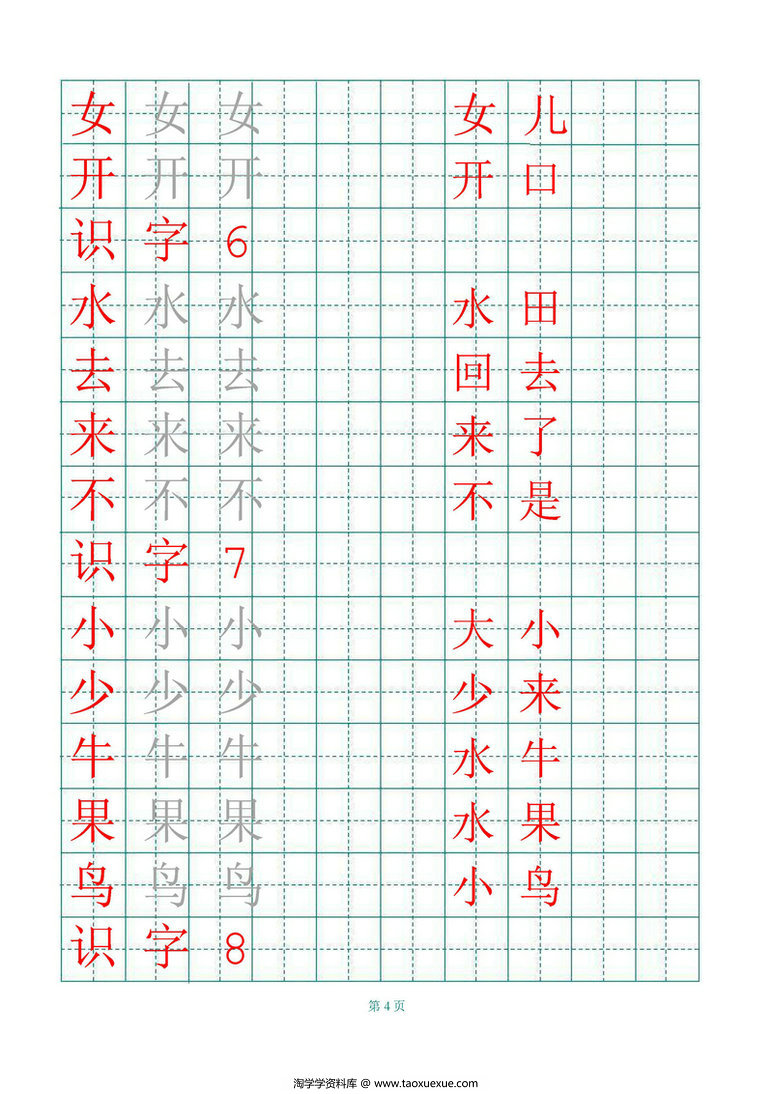 女 女 女 女 儿
开 开 开 开 口
识 字 6
水 水 水 水 田
去 去 去 回 去
来 来 来 来 了
不 不 不 不 是
识 字 7
小 小 小 大 小
少 少 少 少 来
牛 牛 牛 水 牛
果 果 果 水 果
鸟 鸟 鸟 小 鸟
识 字 8
第 4 页
淘学学资料库 @ www.taoxuexue.com